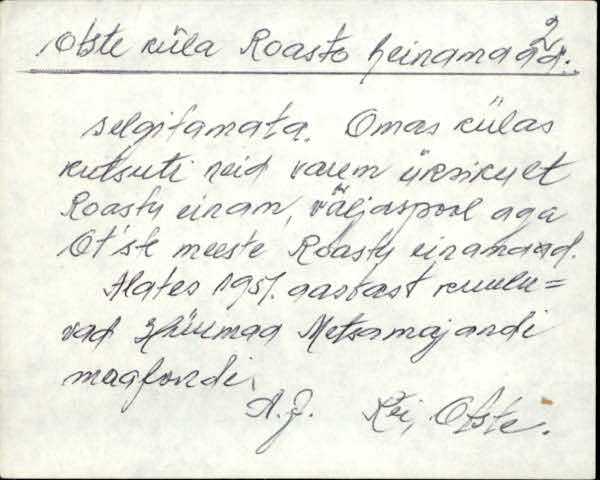 2
Otste küla Roasto heinamaad.
selgitamata. Omas külas
kutsuti neid varem üksikult
Roastu einam, väljaspool aga
Ot'ste meeste Roastu einamaad.
Alates 1951. aastast kuulu=
vad Hiiumaa Metsamajandi
maafondi.
A.J. Käi, Otste.